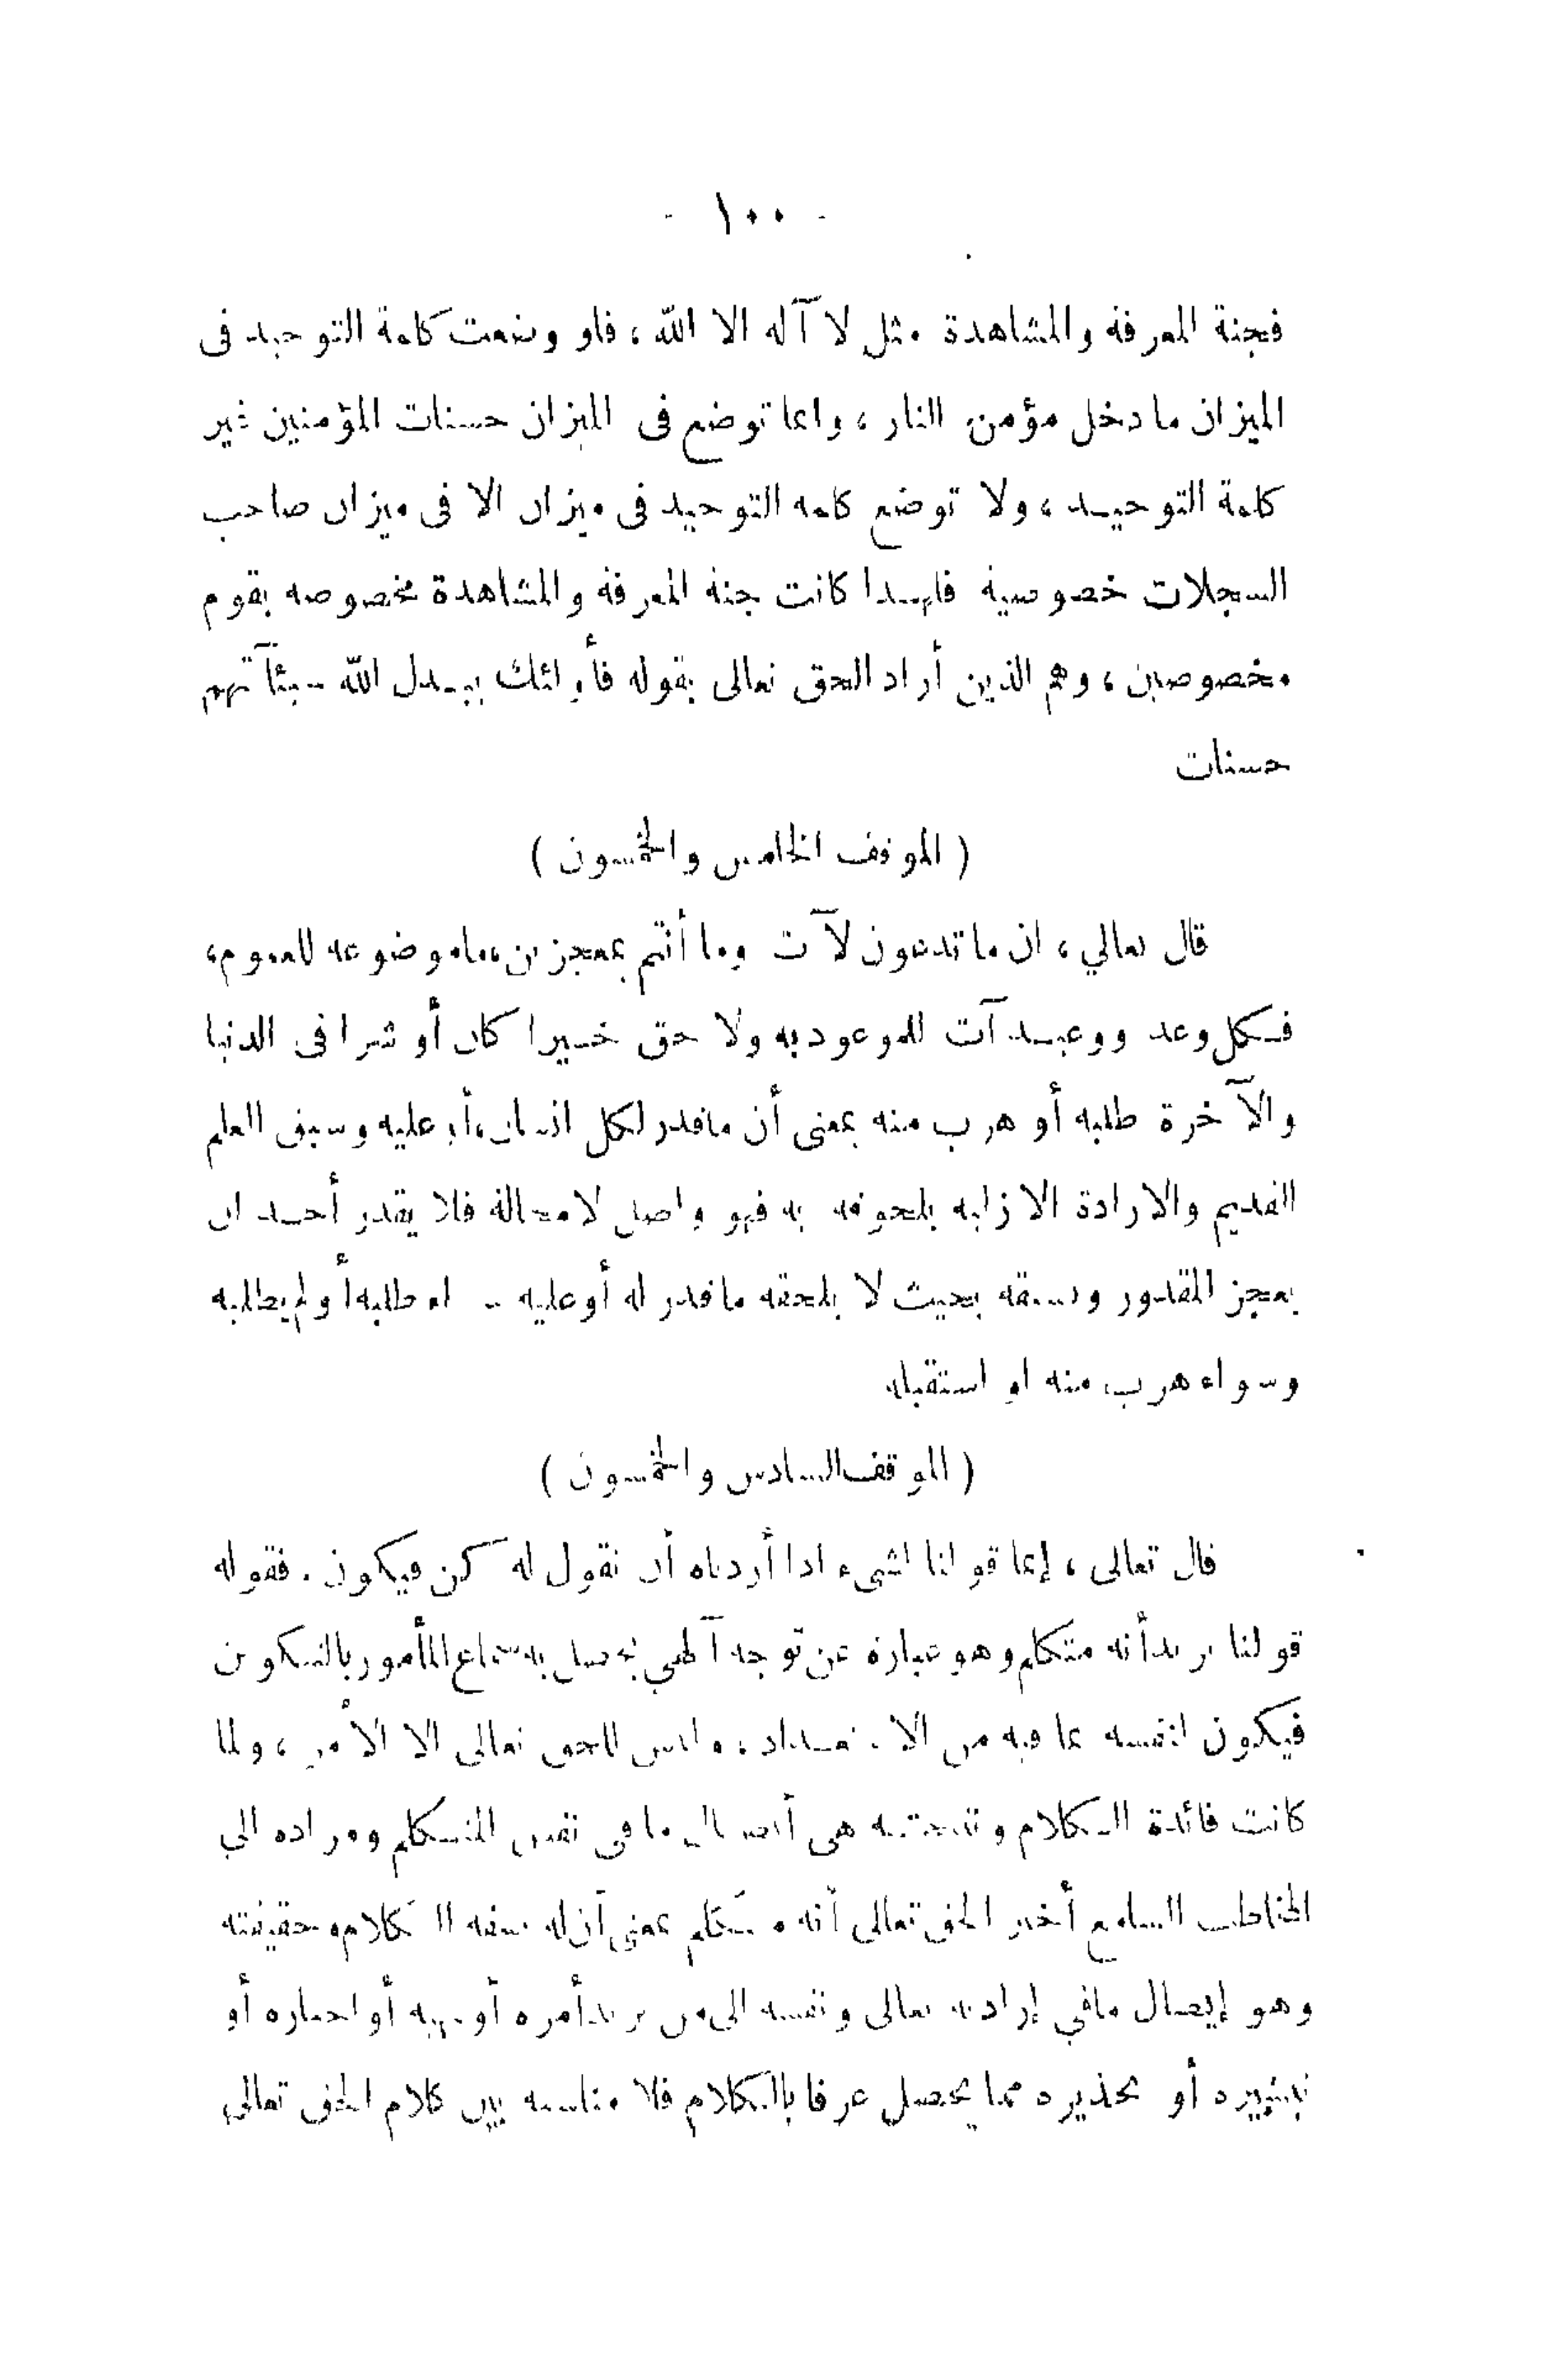 - ١٠٠ -
فجنة المعرفة والمشاهدة مثل لا آله الا الله ، فلو وضعت كلمة التوحيد فى
الميزان ما دخل مؤمن النار ، وانما توضع فى الميزان حسنات المؤمنين غير
كلمة التوحيد ، ولا توضع كلمة التوحيد فى ميزان الا فى ميزان صاحب
السجلات خصوصية فلهذا كانت جنة المعرفة والمشاهدة مخصوصة بقوم
مخصوصين ، وهم الذين أراد الحق تعالى بقوله فأولئك يبدل الله سيئآتهم
حسنات
( الموقف الخامس والخمسون )
قال تعالي ، ان ما توعدون لآت وما أنتم بمعجزين ، ما موضوعة للعموم ،
فكل وعد ووعيد آت للموعود به ولا حق خيرا كان أو شرا فى الدنيا
والآخرة طلبه أو هرب منه بمعنى أن ما قدر لكل انسان أو عليه وسبق العلم
القديم والارادة الازلية بلحوقه به فهو واصل لامحالة فلا يقدر أحد ان
يعجز المقدور ويسبقه بحيث لا يلحقه ما قدر له أو عليه طلبه أو لم يطلبه
وسواء هرب منه او استقبله
( الموقف السادس والخمسون )
قال تعالى ، إنما قولنا لشيء اذا أردناه أن نقول له كن فيكون . فقوله
قولنا يريد أنه متكلم وهو عبارة عن توجه آلهي يحصل به سماع المأمور بالتكوين
فيكون لنفسه بما فيه من الاستعداد ، وليس للحق تعالى الا الأمر ، ولما
كانت فائدة الكلام ونتيجته هى أيصال ما فى نفس المتكلم ومراده الى
المخاطب السامع أخبر الحق تعالى أنه متكلم بمعنى أن له صفة الكلام وحقيقته
وهو إيصال مافي إرادته تعالى ونفسه الى من يريد أمره أو نهيه أو اخباره أو
تبشيره أو تحذيره مما يحصل عرفا بالكلام فلا مناسبة بين كلام الحق تعالى